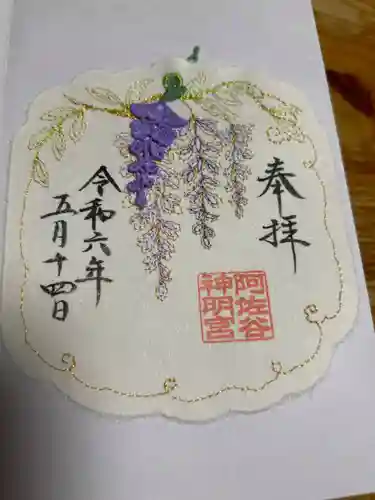 奉拝
阿佐谷
神明宮
令和六年
五月十四日